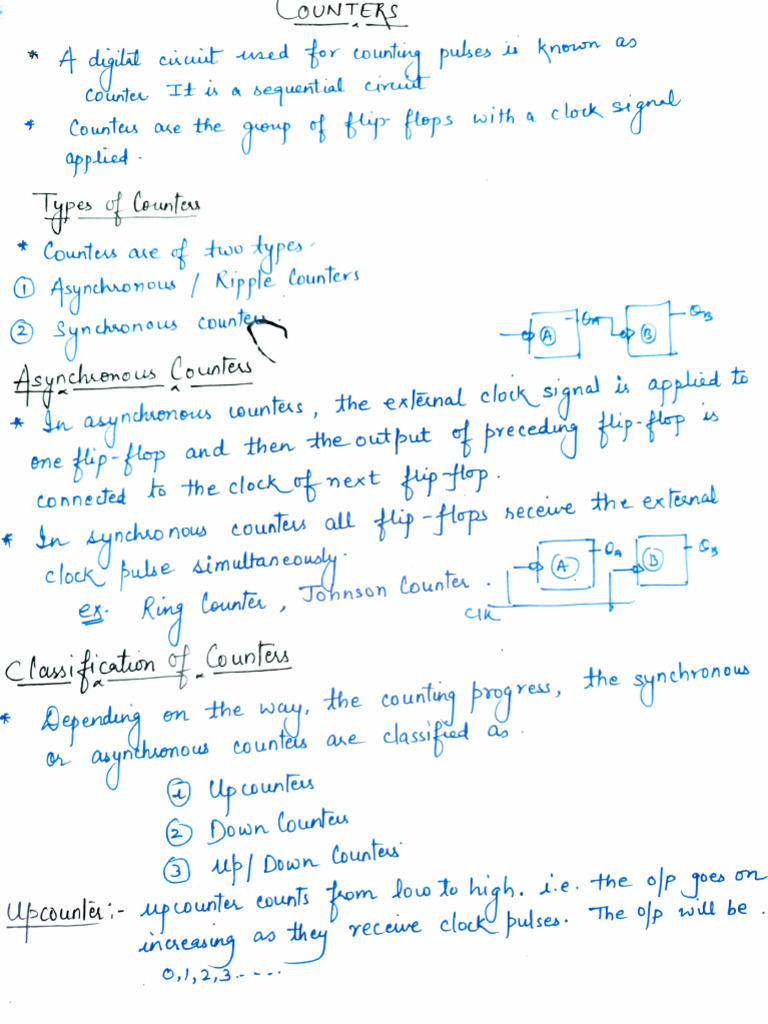 COUNTERS
* A digital circuit used for counting pulses is known as
counter It is a sequential circuit
* Counters are the group of flip-flops with a clock signal
applied.
Types of Counters
* Counters are of two types.
① Asynchronous / Ripple Counters
② Synchronous counters.
A QA B QB
Asynchronous Counters
* In asynchronous counters, the external clock signal is applied to
one flip-flop and then the output of preceding flip-flop is
connected to the clock of next flip flop.
* In synchronous counters all flip-flops receive the external
clock pulse simultaneously.
ex. Ring Counter, Johnson Counter.
A QA B QB
Clk
Classification of Counters
* Depending on the way, the counting progress, the synchronous
or asynchronous counters are classified as.
① Up counters
② Down Counters
③ Up/Down Counters
Upcounter:- upcounter counts from low to high. i.e. the o/p goes on
increasing as they receive clock pulses. The o/p will be.
0,1,2,3.----